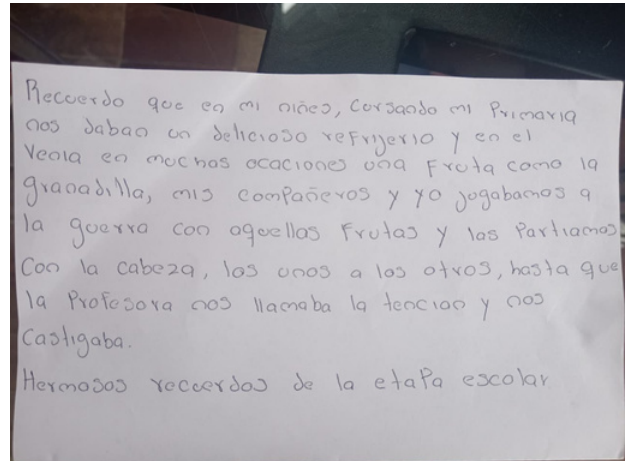 Recuerdo que en mi niñes, Cursando mi Primaria
nos daban un delicioso refrijerio y en el
Venia en muchas ocaciones una Fruta como la
granadilla, mis compañeros y yo jugabamos a
la guerra con aquellas Frutas y las Partiamos
Con la cabeza, los unos a los otros, hasta que
la Profesora nos llamaba la tencion y nos
Castigaba.
Hermosos recuerdos de la etapa escolar